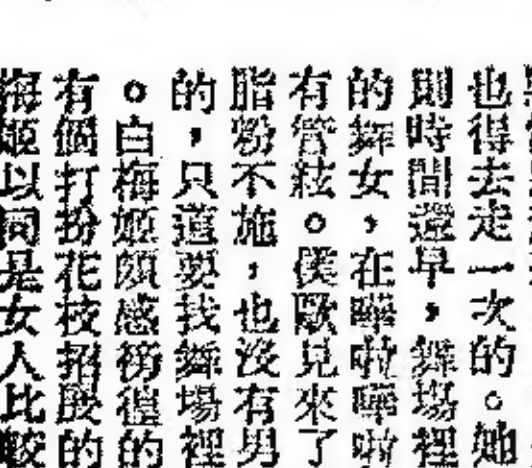 也得去走一次的。她
則時間還早，舞場裡
的舞女，在嘩啦嘩啦
有管絃。僕歐見來了
脂粉不施，也沒有男
的，只道要找舞場裡
。白梅姬頗感徬徨的
有個打扮花枝招展的
梅姬以同是女人比較